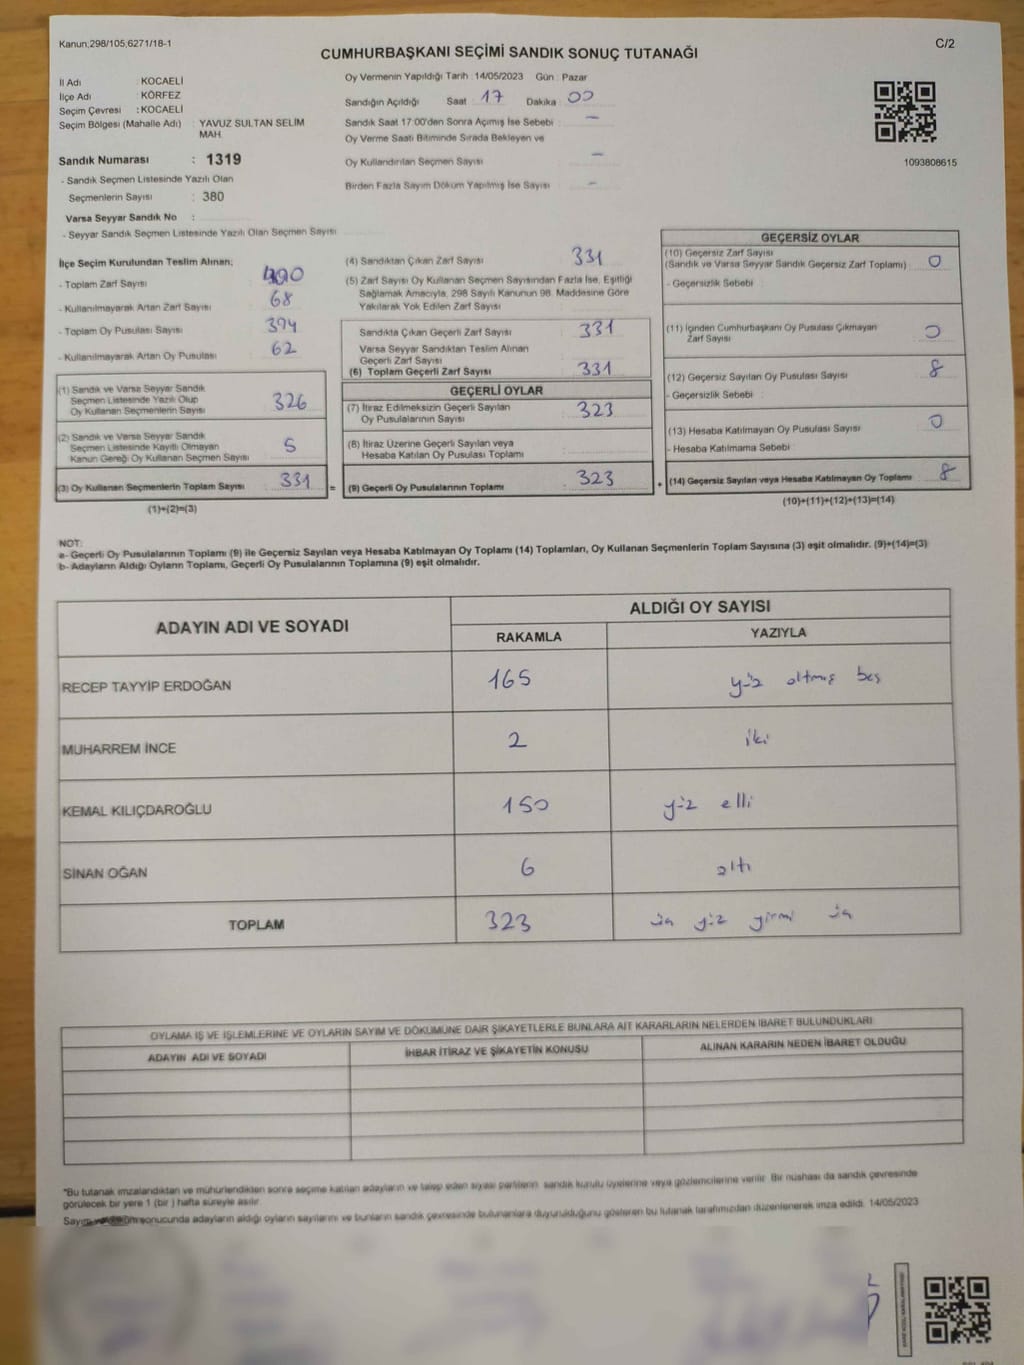 Kanun;298/105;6271/18-1
C/2
CUMHURBAŞKANI SEÇİMİ SANDIK SONUÇ TUTANAĞI
İl Adı : KOCAELİ
İlçe Adı : KÖRFEZ
Seçim Çevresi : KOCAELİ
Seçim Bölgesi (Mahalle Adı) : YAVUZ SULTAN SELİM MAH.
Sandık Numarası : 1319
- Sandık Seçmen Listesinde Yazılı Olan
Seçmenlerin Sayısı : 380
Varsa Seyyar Sandık No :
- Seyyar Sandık Seçmen Listesinde Yazılı Olan Seçmen Sayısı
Oy Vermenin Yapıldığı Tarih : 14/05/2023 Gün : Pazar
Sandığın Açıldığı Saat : 17 Dakika : 00
Sandık Saat 17:00'den Sonra Açımış İse Sebebi : -
Oy Verme Saati Bitiminde Sırada Bekleyen ve
Oy Kullandırılan Seçmen Sayısı : -
Birden Fazla Sayım Döküm Yapılmış İse Sayısı : -
1093808615
İlçe Seçim Kurulundan Teslim Alınan;
- Toplam Zarf Sayısı : 400
- Kullanılmayarak Artan Zarf Sayısı : 68
- Toplam Oy Pusulası Sayısı : 394
- Kullanılmayarak Artan Oy Pusulası : 62
(1) Sandık ve Varsa Seyyar Sandık
Seçmen Listesinde Yazılı Olup
Oy Kullanan Seçmenlerin Sayısı : 326
(2) Sandık ve Varsa Seyyar Sandık
Seçmen Listesinde Kayıtlı Olmayan
Kanun Gereği Oy Kullanan Seçmen Sayısı : 5
(3) Oy Kullanan Seçmenlerin Toplam Sayısı : 331
(1)+(2)=(3)
(4) Sandıktan Çıkan Zarf Sayısı : 331
(5) Zarf Sayısı Oy Kullanan Seçmen Sayısından Fazla İse, Eşitliği
Sağlamak Amacıyla, 298 Sayılı Kanunun 98. Maddesine Göre
Yakılarak Yok Edilen Zarf Sayısı :
Sandıkta Çıkan Geçerli Zarf Sayısı : 331
Varsa Seyyar Sandıktan Teslim Alınan
Geçerli Zarf Sayısı :
(6) Toplam Geçerli Zarf Sayısı : 331
GEÇERLİ OYLAR
(7) İtiraz Edilmeksizin Geçerli Sayılan
Oy Pusulalarının Sayısı : 323
(8) İtiraz Üzerine Geçerli Sayılan veya
Hesaba Katılan Oy Pusulası Toplamı :
= (9) Geçerli Oy Pusulalarının Toplamı : 323
GEÇERSİZ OYLAR
(10) Geçersiz Zarf Sayısı
(Sandık ve Varsa Seyyar Sandık Geçersiz Zarf Toplamı) : 0
- Geçersizlik Sebebi :
(11) İçinden Cumhurbaşkanı Oy Pusulası Çıkmayan
Zarf Sayısı : 0
(12) Geçersiz Sayılan Oy Pusulası Sayısı : 8
- Geçersizlik Sebebi :
(13) Hesaba Katılmayan Oy Pusulası Sayısı : 0
- Hesaba Katılmama Sebebi
+ (14) Geçersiz Sayılan veya Hesaba Katılmayan Oy Toplamı : 8
(10)+(11)+(12)+(13)=(14)
NOT:
a- Geçerli Oy Pusulalarının Toplamı (9) ile Geçersiz Sayılan veya Hesaba Katılmayan Oy Toplamı (14) Toplamları, Oy Kullanan Seçmenlerin Toplam Sayısına (3) eşit olmalıdır. (9)+(14)=(3)
b- Adayların Aldığı Oyların Toplamı, Geçerli Oy Pusulalarının Toplamına (9) eşit olmalıdır.
ADAYIN ADI VE SOYADI
ALDIĞI OY SAYISI
RAKAMLA YAZIYLA
RECEP TAYYİP ERDOĞAN 165 yüz altmış beş
MUHARREM İNCE 2 iki
KEMAL KILIÇDAROĞLU 150 yüz elli
SİNAN OĞAN 6 altı
TOPLAM 323 üç yüz yirmi üç
OYLAMA İŞ VE İŞLEMLERİNE VE OYLARIN SAYIM VE DÖKÜMÜNE DAİR ŞİKAYETLERLE BUNLARA AİT KARARLARIN NELERDEN İBARET BULUNDUKLARI
ADAYIN ADI VE SOYADI İHBAR İTİRAZ VE ŞİKAYETİN KONUSU ALINAN KARARIN NEDEN İBARET OLDUĞU
*Bu tutanak imzalandıktan ve mühürlendikten sonra seçime katılan adayların ve talep eden siyasi partilerin sandık kurulu üyelerine veya gözlemcilerine verilir. Bir nüshası da sandık çevresinde
görülecek bir yere 1 (bir ) hafta süreyle asılır.
Sayım sonucunda adayların aldığı oyların sayılarını ve bunların sandık çevresinde bulunanlara duyurulduğunu gösteren bu tutanak tarafımızdan düzenlenerek imza edildi. 14/05/2023